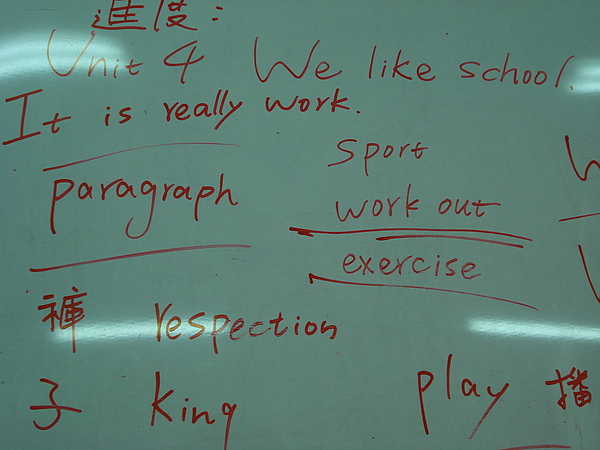 進度:
Unit 4 We like school
It is really work.
sport
paragraph
work out
exercise
褲 respection
子 King
play 播